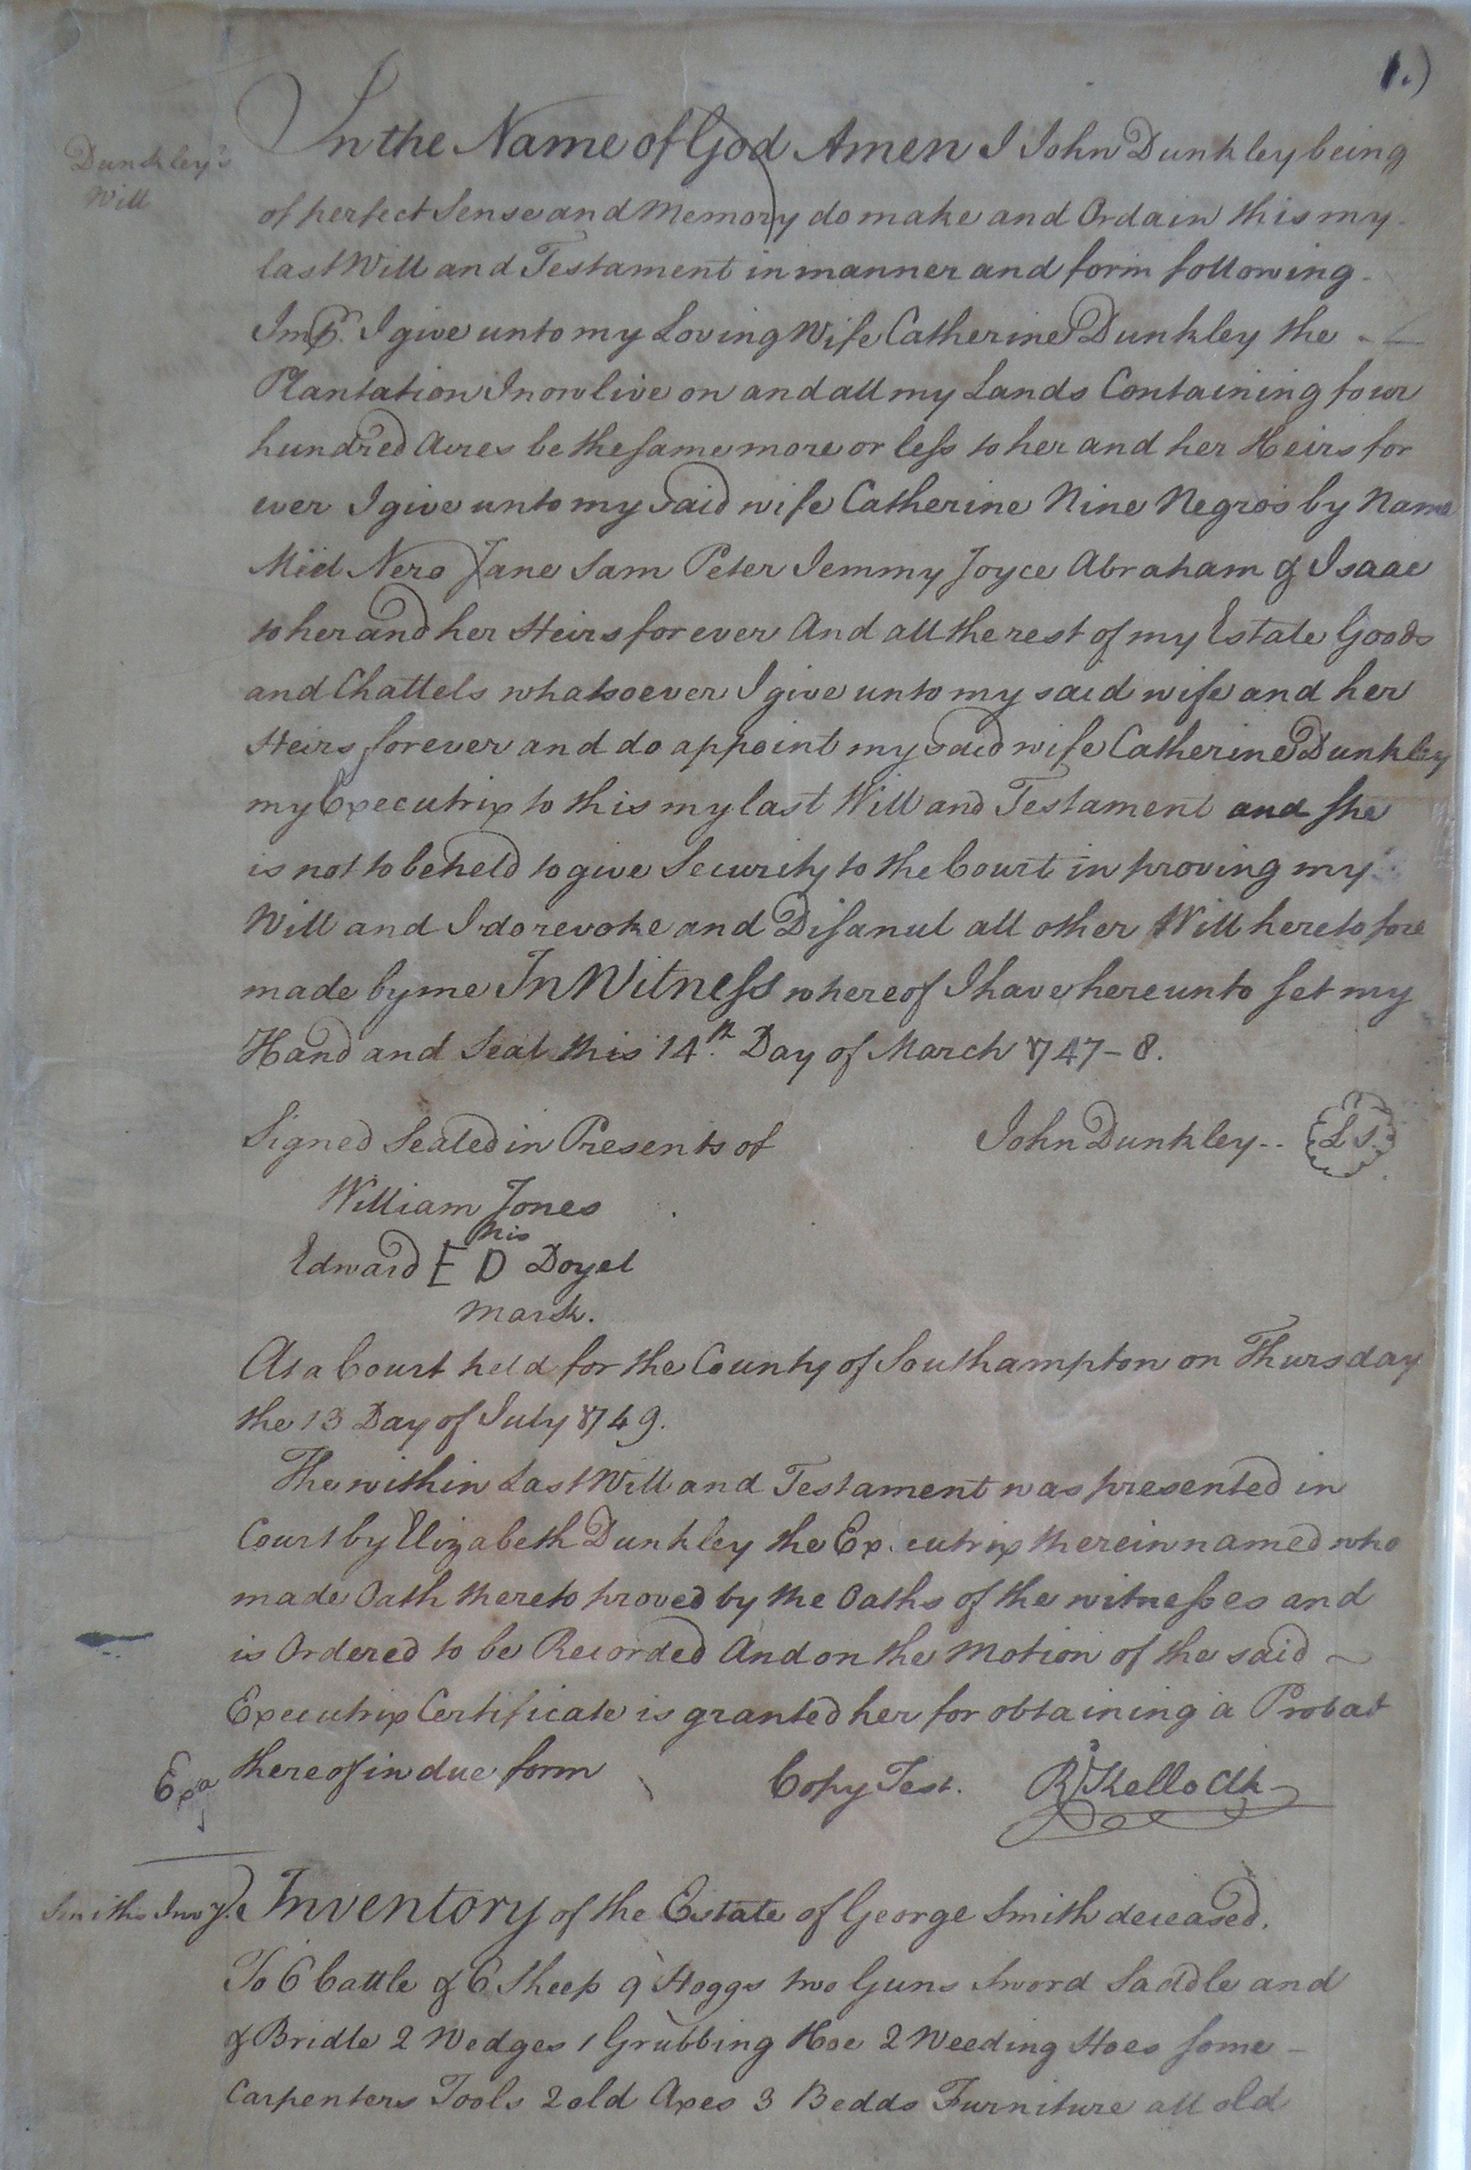 1.)
Dunkley's
Will
In the Name of God Amen I John Dunkley being
of perfect Sense and Memory do make and Ordain this my
last Will and Testament in manner and form following
Imp. I give unto my Loving Wife Catherine Dunkley the
Plantation I now live on and all my Lands Containing four
hundred Acres be the same more or less to her and her Heirs for
ever I give unto my said wife Catherine Nine Negro's by Name
Mid Nero Jane Sam Peter Jemmy Joyce Abraham & Isaac
to her and her Heirs for ever And all the rest of my Estate Goods
and Chattels whatsoever I give unto my said wife and her
Heirs forever and do appoint my said wife Catherine Dunkley
my Executrix to this my last Will and Testament and she
is not to be held to give Security to the Court in proving my
Will and I do revoke and Disanul all other Will heretofore
made by me In Witness whereof I have hereunto set my
Hand and Seal this 14th. Day of March 1747-8.
Signed Sealed in Presents of John Dunkley-- L S.
William Jones
his
Edward E D Doyel
mark.
At a Court held for the County of Southampton on Thursday
the 13 Day of July 1749.
The within Last Will and Testament was presented in
Court by Elizabeth Dunkley the Executrix therein named who
made Oath thereto proved by the Oaths of the witnesses and
is Ordered to be Recorded And on the Motion of the said
Executrix Certificate is granted her for obtaining a Probat
Exa thereof in due form Copy Test. Rd. Kello Clk
Smiths Invy. Inventory of the Estate of George Smith deceased.
To 6 Cattle & 6 Sheep 9 Hoggs two Guns Sword Saddle and
& Bridle 2 Wedges 1 Grubbing Hoe 2 Weeding Hoes some
Carpenters Tools 2 old Axes 3 Bedds Furniture all old